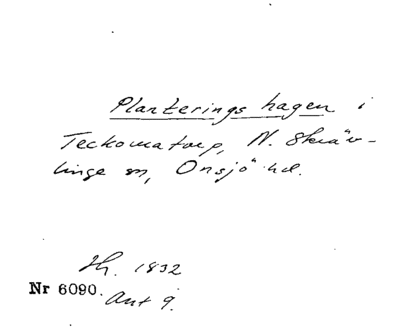 Planterings hagen i
Teckomatorp, N. Skräv-
linge sn, Onsjö hd.
Th. 1832
Nr 6090. Ant 9.